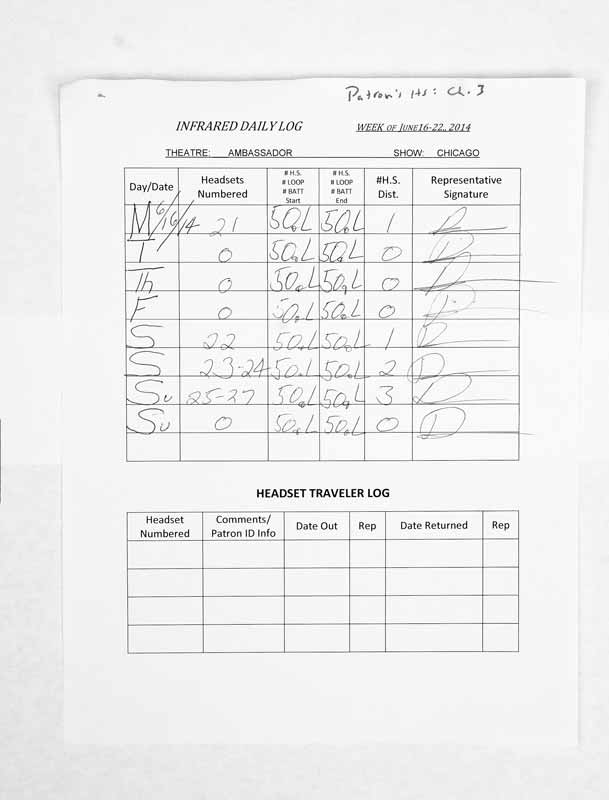 Patron's Hs: Ch. 3
INFRARED DAILY LOG WEEK OF JUNE16-22,, 2014
THEATRE: AMBASSADOR SHOW: CHICAGO
Day/Date Headsets Numbered # H.S. # LOOP # BATT Start # H.S. # LOOP # BATT End #H.S. Dist. Representative Signature
M 6/16/14 21 50 L 50 L 1
T 0 50 L 50 L 0
Th 0 50 L 50 L 0
F 0 50 L 50 L 0
S 22 50 L 50 L 1
S 23-24 50 L 50 L 2
Su 25-27 50 L 50 L 3
Su 0 50 L 50 L 0
HEADSET TRAVELER LOG
Headset Numbered Comments/ Patron ID Info Date Out Rep Date Returned Rep